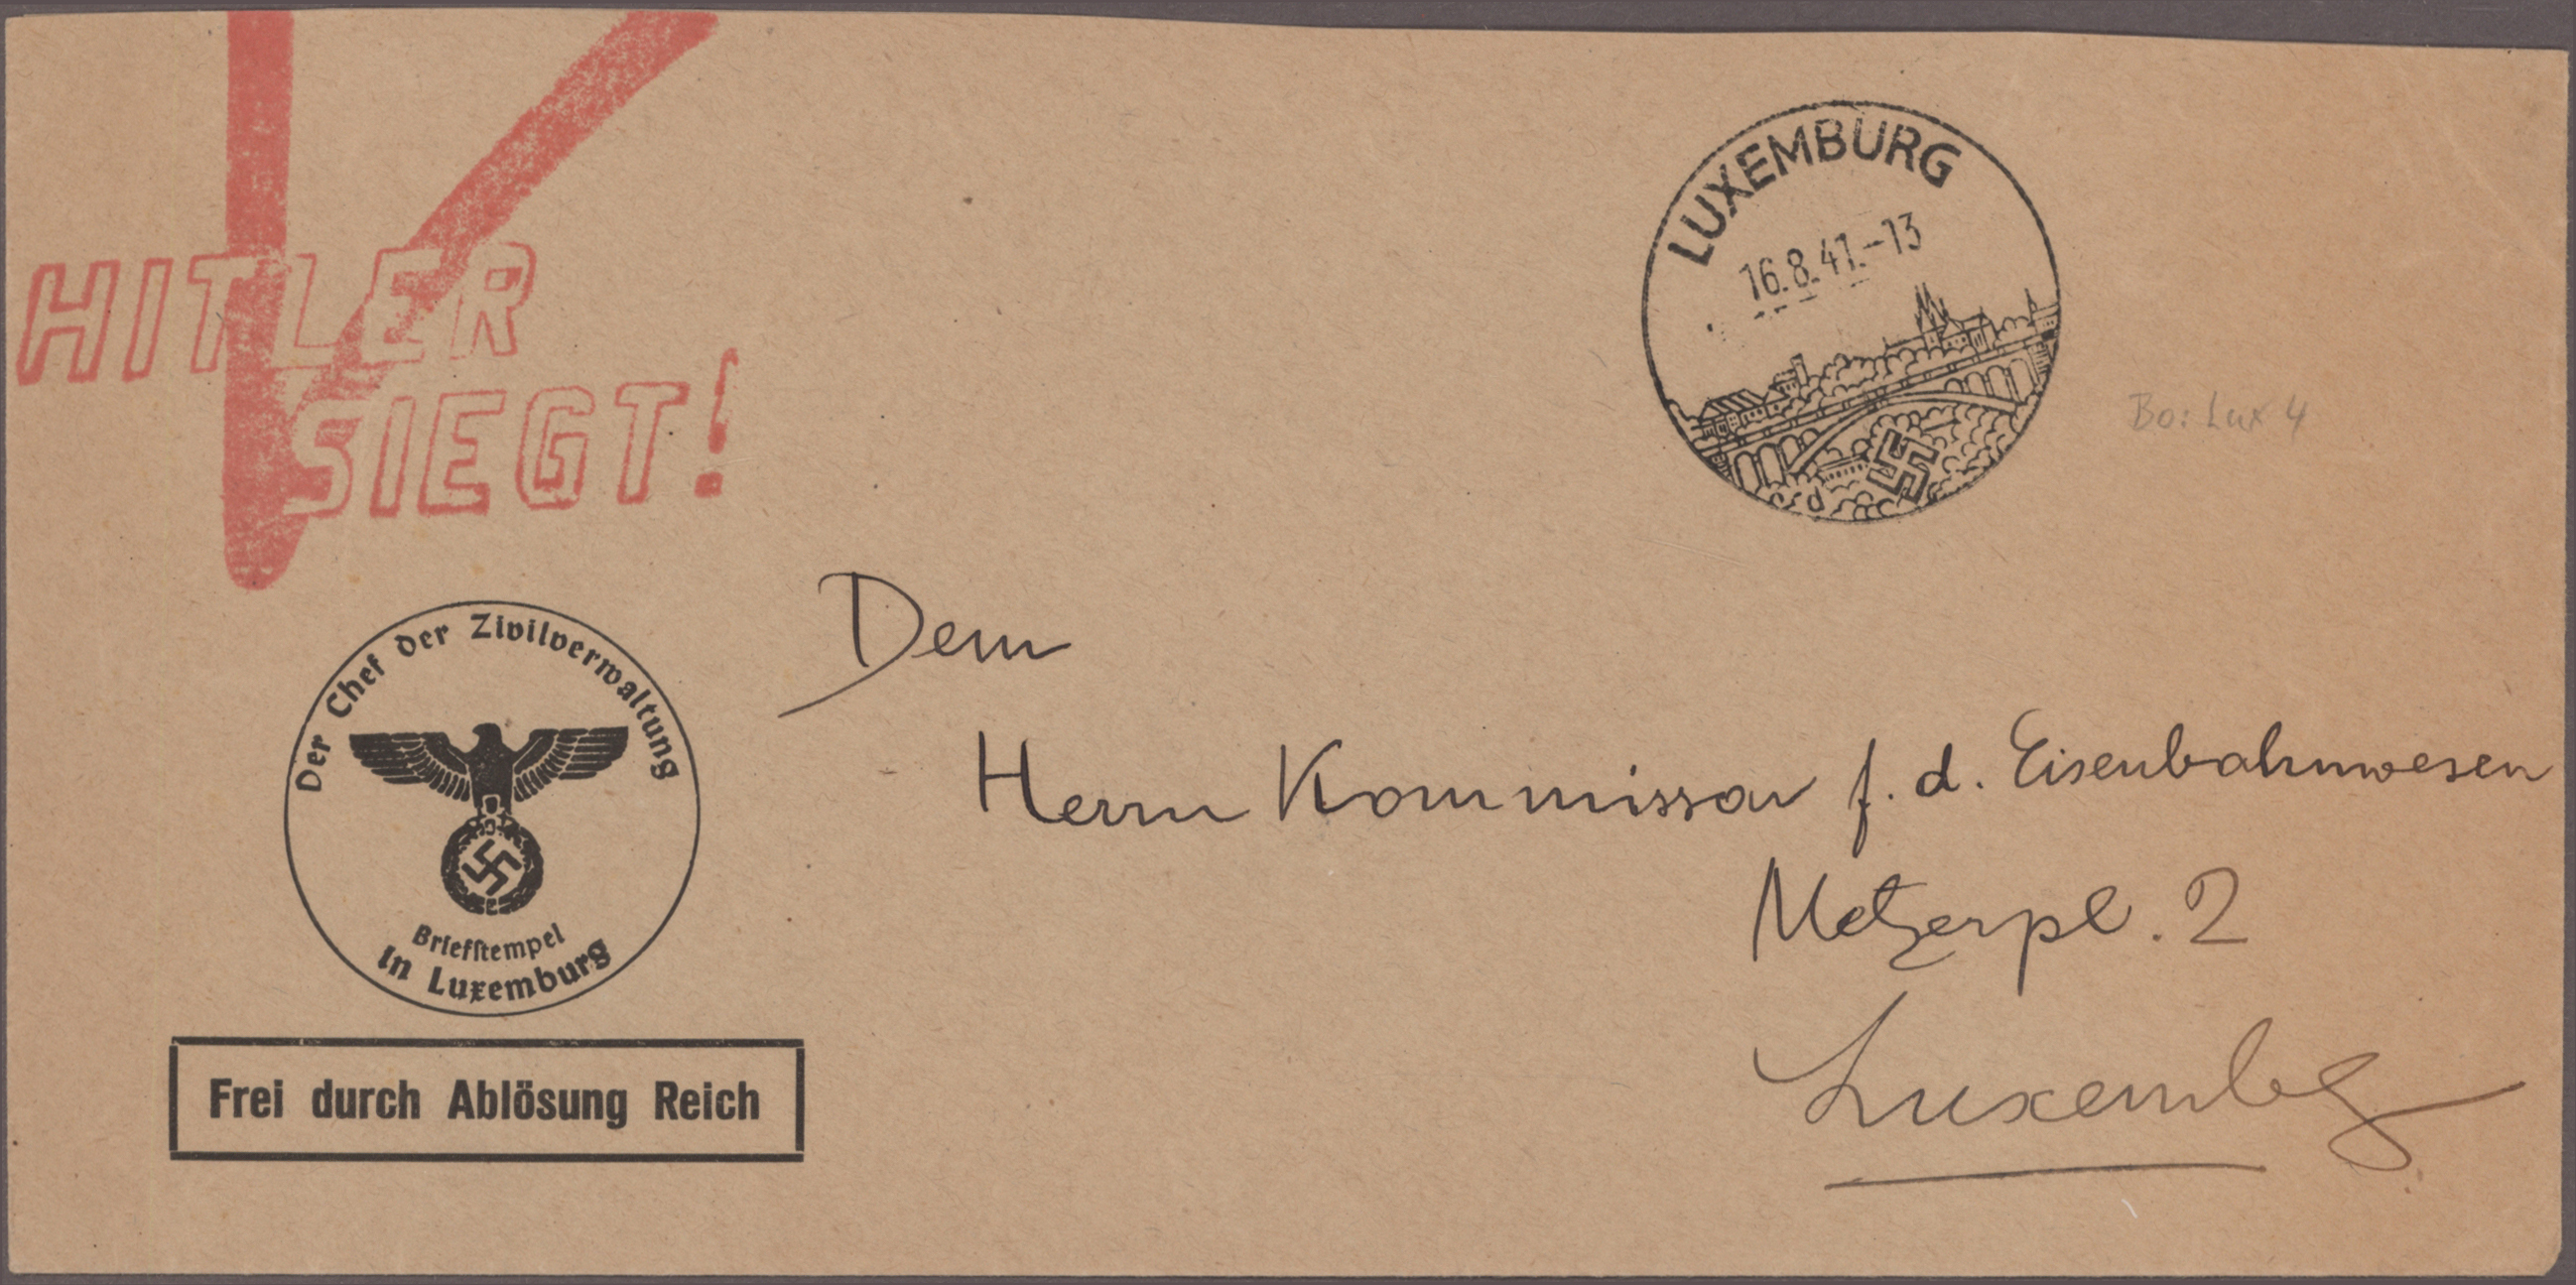 HITLER
SIEGT!
LUXEMBURG
16.8.41.-13
d
Bo: Lux 4
Der Chef der Zivilverwaltung
Briefstempel
in Luxemburg
Frei durch Ablösung Reich
Dem
Herrn Kommissar f. d. Eisenbahnwesen
Metzerpl. 2
Luxembg